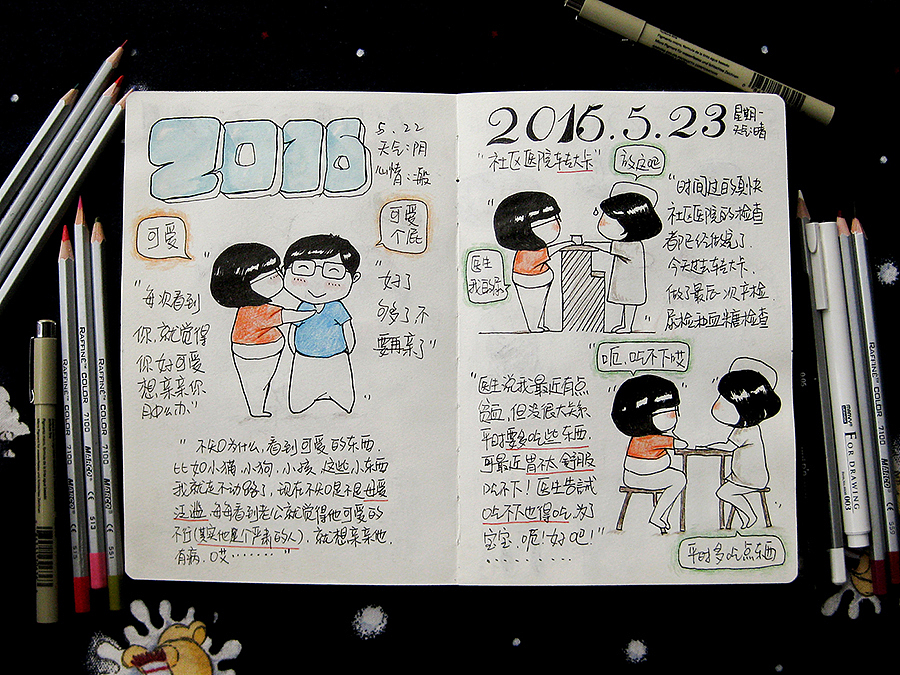 2016
5.22
天气:阴
心情:一般
可爱
可爱
个屁
"每次看到
你,就觉得
你好可爱
想亲亲你
肿么办."
"好了
够了不
要再亲了"
"不知为什么,看到可爱的东西
比如小猫,小狗,小孩,这些小东西
我就走不动路了,现在不知是不是母爱
泛滥,每每看到老公就觉得他可爱的
不行(其实他是个严肃的人),就想亲亲他.
有病.哎
2016.5.23
星期一
天气:晴
"社区医院转大卡"
放这吧
医生
我的尿
"时间过的真快
社区医院的检查
都已经做完了.
今天过去转大卡.
做了最后一次产检.
尿检和血糖检查
"医生说我最近有点
贫血,但没很大关系
平时要多吃些东西.
可最近胃不太舒服
吃不下!医生告诫
吃不下也得吃,为了
宝宝.呃!好吧!"
呃.吃不下哎
平时多吃点东西
RAFFINE™ COLOR 7100 MARCO
RAFFINE™ COLOR 7100 MARCO
RAFFINE™ COLOR 7100
FOR DRAWING
003
0.05